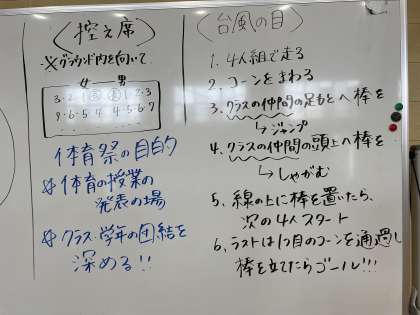 〈控え席〉
※グラウンド内を向いて
女 男
3・2・1 1・2・3
9・6・5・4 4・5・6・7
体育祭の目的
体育の授業の
発表の場
クラス・学年の団結を
深める!!
〈台風の目〉
1. 4人組で走る
2. コーンをまわる
3. クラスの仲間の足もとへ棒を
→ジャンプ
4. クラスの仲間の頭上へ棒を
→しゃがむ
5. 線の上に棒を置いたら、
次の4人スタート
6. ラストは1つ目のコーンを通過し
棒を立てたらゴール!!!